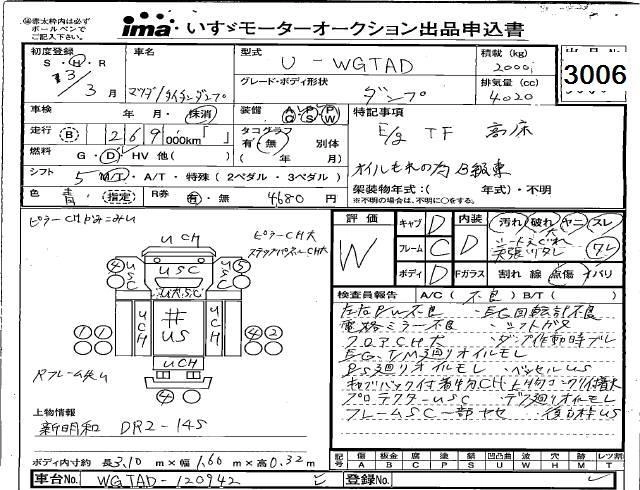 赤太枠内は必ず
ボールペンで
ご記入下さい。
ima いすゞモーターオークション出品申込書
初度登録
S・H・R
13/3月
車名
マツダ/タイタンダンプ
型式
U-WGTAD
積載 (kg)
2000
グレード・ボディ形状
ダンプ
排気量 (cc)
4020
3006
車検
年・月・抹消
装備
AC PS PW
特記事項
E/g TF 高床
オイルもれの為B級車
走行
B 269,000km「 」
タコグラフ
有・無 別体
( 年 月)
燃料
G・D・HV 他( )
シフト
5 MT・A/T・特殊(2ペダル・3ペダル)
架装物年式:( 年式)・不明
※不明の場合は、不明に○をする。
色
青 (指定)
R券
有・無 4680円
評価
W
キャブ D
フレーム C
ボディ D
内装 D
Fガラス
汚れ 破れ ヤニ スレ
大
シートえぐれ
天張リダレ
ワレ
割れ 線 点傷 イバリ
検査員報告 A/C(不良)B/T( )
左右P/W不良 ・EG回転計不良
電格ミラー不良 ・シフトガタ
フロアCH大 ・ダンプ作動時ブレ
EG、T/M廻りオイルモレ
PS廻りオイルモレ ・ベッセルUS
キャブバック付着物CH
プロテクターUSC ・デフ廻りオイルモレ
フレームSC一部ヤセ
ピラーCH大
ステップパネルCH大
UCH
USC
4
5
USC
USC
UCH
UCH
#
US
1
1
4
2
UCH
4
上物情報
新明和 DR2-14S
ボディ内寸約 長3.10m×幅1.60m×高0.32m
記号
傷 板金 腐 塗 錆 凹凸曲 波 穴 跡 レツ割
A B C P S U W H M T
車台No. WGTAD-120942
登録No.